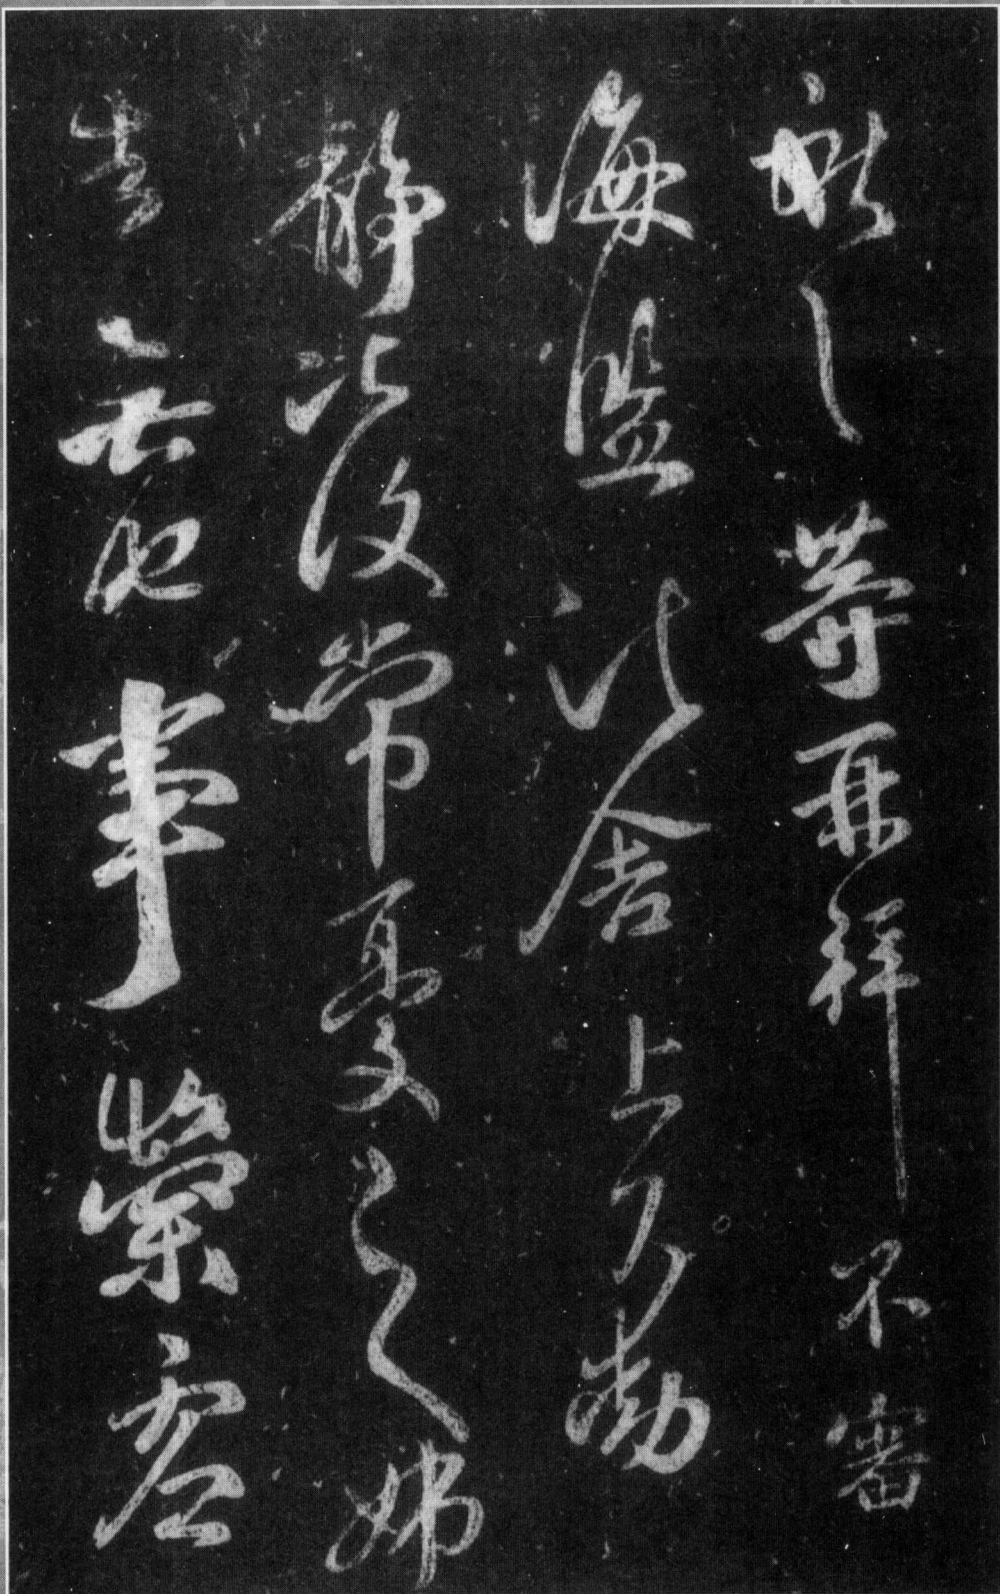 獻之等再拜不審
海鹽諸舍上下動
靜比復常憂之姊
告無他事崇虛